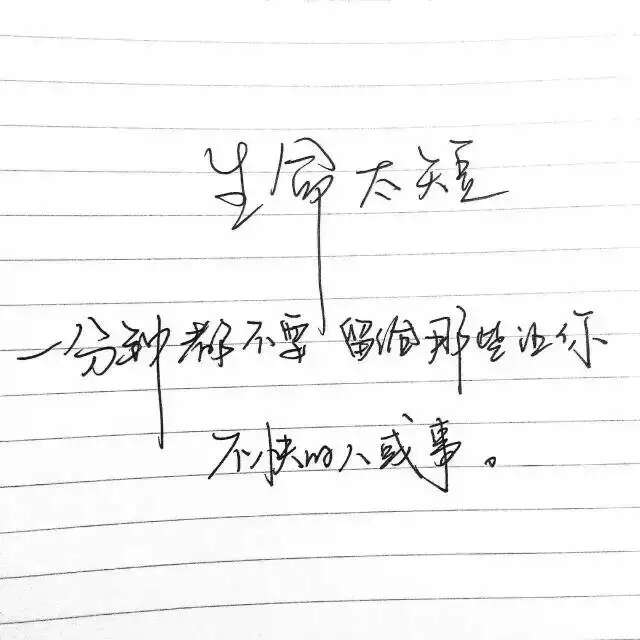 生命太短
一分钟都不要留给那些让你
不快的人或事。